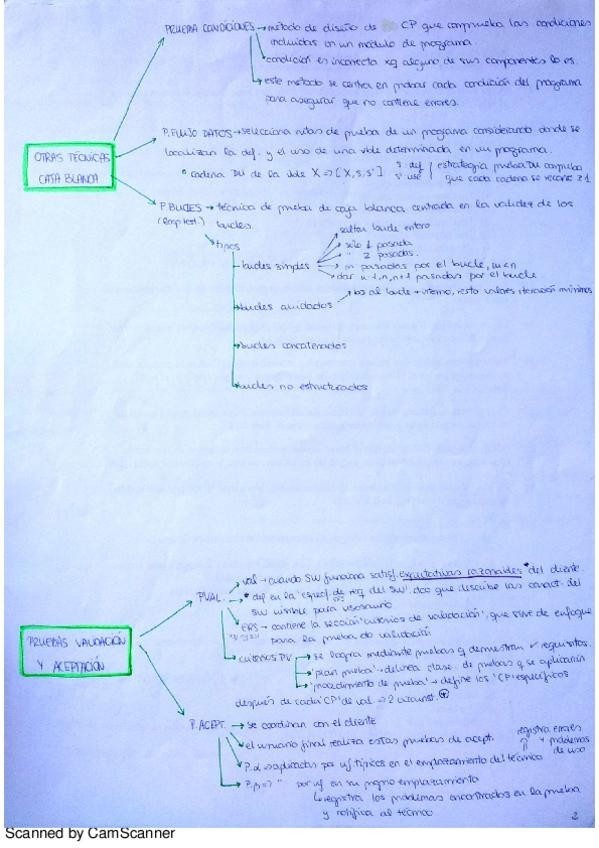 PRUEBA CONDICIONES → método de diseño de CP que comprueba las condiciones
incluidas en un módulo de programa.
→ condición es incorrecta xq alguno de sus componentes lo es.
→ este método se centra en probar cada condición del programa
para asegurar que no contiene errores.
OTRAS TÉCNICAS
CAJA BLANCA
P. FLUJO DATOS → selecciona rutas de prueba de un programa considerando donde se
localizan la def. y el uso de una vble determinada en un programa.
cadena DU de la vble X => [X, S, S'] S: def S': uso estrategia prueba DU comprueba
que cada cadena se recorre
P. BUCLES → técnica de prueba de caja blanca centrada en la validez de los
(loop test.) bucles
→ tipos
→ bucles simples
saltar bucle entero
solo 1 pasada
" 2 pasadas.
m pasadas por el bucle, m<n
dar n-1, n, n+1 pasadas por el bucle
→ bucles anidados → bs al bucle + interno, resto valores iteración mínimos
→ bucles concatenados
→ bucles no estructurados
PRUEBAS VALIDACIÓN
Y ACEPTACIÓN
P.VAL.
val → cuando SW funciona satisf. expectativas razonables * del cliente.
→ * def en la 'especif. de req del SW', doc que describe las caract. del
SW visible para usuario
ERS → contiene la sección 'criterios de validación', que sirve de enfoque
para la prueba de validación
criterios PV → se logra mediante pruebas q demuestran ✓ requisitos.
'plan prueba' → delinea clase de pruebas q se aplicarán
'procedimiento de prueba' → define los 'CP' específicos
después de cada 'CP' de val. → 2 circunst. ⊕
P. ACEPT. → se coordinan con el cliente
→ el usuario final realiza estas pruebas de acept.
registra errores
y problemas
de uso
P. α → aplicadas por uf típicos en el emplazamiento del técnico
P. β => " por uf en su propio emplazamiento
↳ registra los problemas encontrados en la prueba
y notifica al técnico
2
Scanned by CamScanner